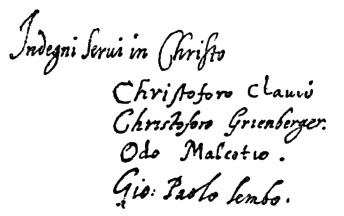 Indegni Serui in Christo
Christoforo Clauio
Christoforo Grienberger.
Odo Malcotio.
Gio: Paolo lembo.